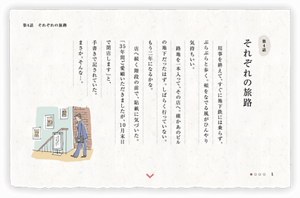 第4話　それぞれの旅路
第4話
それぞれの旅路
用事を終えて、すぐに地下鉄には乗らず、
ぶらぶらと歩く。頬をなでる風がひんやり
気持ちいい。
路地を一本入って、その店へ。確かあのビル
の地下だったはず。しばらく行っていない。
もう二年になるかな。
店へ続く階段の前で、貼紙に気づいた。
「35年間ご愛顧いただきましたが、10月末日
で閉店します」と、
手書きで記されていた。
まさか、そんな…。
1